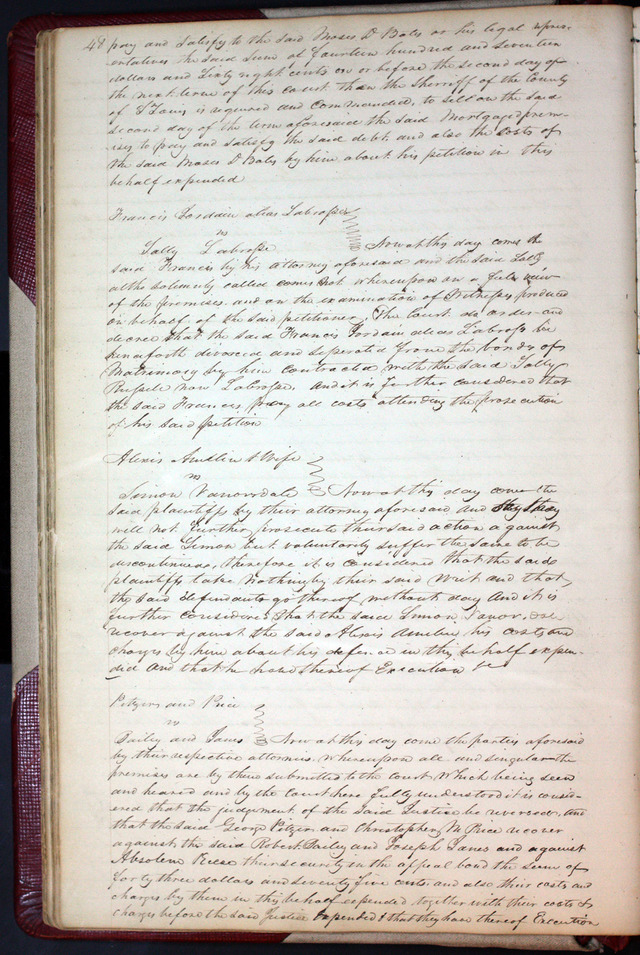 48 pay and satisfy to the said Moses D Bates or his legal repres-
entatives the said sum of fourteen hundred and seventeen
dollars and Sixty eight cents on or before the second day of
the next term of this court than the Sherriff of the County
of St Louis is required and commanded, to sell on the said
second day of the term aforesaid the said Mortgaged prem-
ises to pay and satisfy the said debt and also the costs of
the said Moses D Bates by him about his petition in this
behalf expended
Francis Jordain alias Labrosse
vs
Sally Labrosse Now at this day comes the
said Francis by his attorney aforesaid and the said Sally
altho solemnly called comes not whereupon on a full view
of the premises and on the examination of Witnesses produced
on behalf of the said petitioner, The Court do order and
decree that the said Francis Jordain alias Labrosse be
henceforth divorced and seperated from the bonds of
Matrimony by him contracted with the said Sally
now Labrosse. And it is further considered that
the said Francis pay all costs attending the prosecution
of his said petition
Alexis Amelin & Wife
vs
Simon Vanorsdale Now at this day come the
said plaintiffs by their attorney aforesaid and say they
will not further prosecute their said action against
the said Simon but voluntarily suffer the same to be
discontinued, Therefore it is considered that the said
plaintiffs take nothing by their said Writ and that
the said defendants go thereof without day And it is
further considered that the said Simon
recover against the said Alexis Amelin his costs and
charges by him about his defence in this behalf expen-
ded And that he have thereof Execution &c
Pitzers and Price
vs
Bailey and James Now at this day come the parties aforesaid
by their respective attornies whereupon all and singular the
premises are by them submitted to the court Which being seen
and heared and by the Court here fully understood it is consid-
ered that the judgement of the said Justice be reversed, and
that the said George Pitzers and Christopher M Price recover
against the said Robert Bailey and Joseph James and against
Absolem Reese their security in the appeal bond the sum of
forty three dollars and seventy five cents and also their costs and
charges by them in this behalf expended together with their costs &
charges before the said Justice expended & that they have thereof Execution